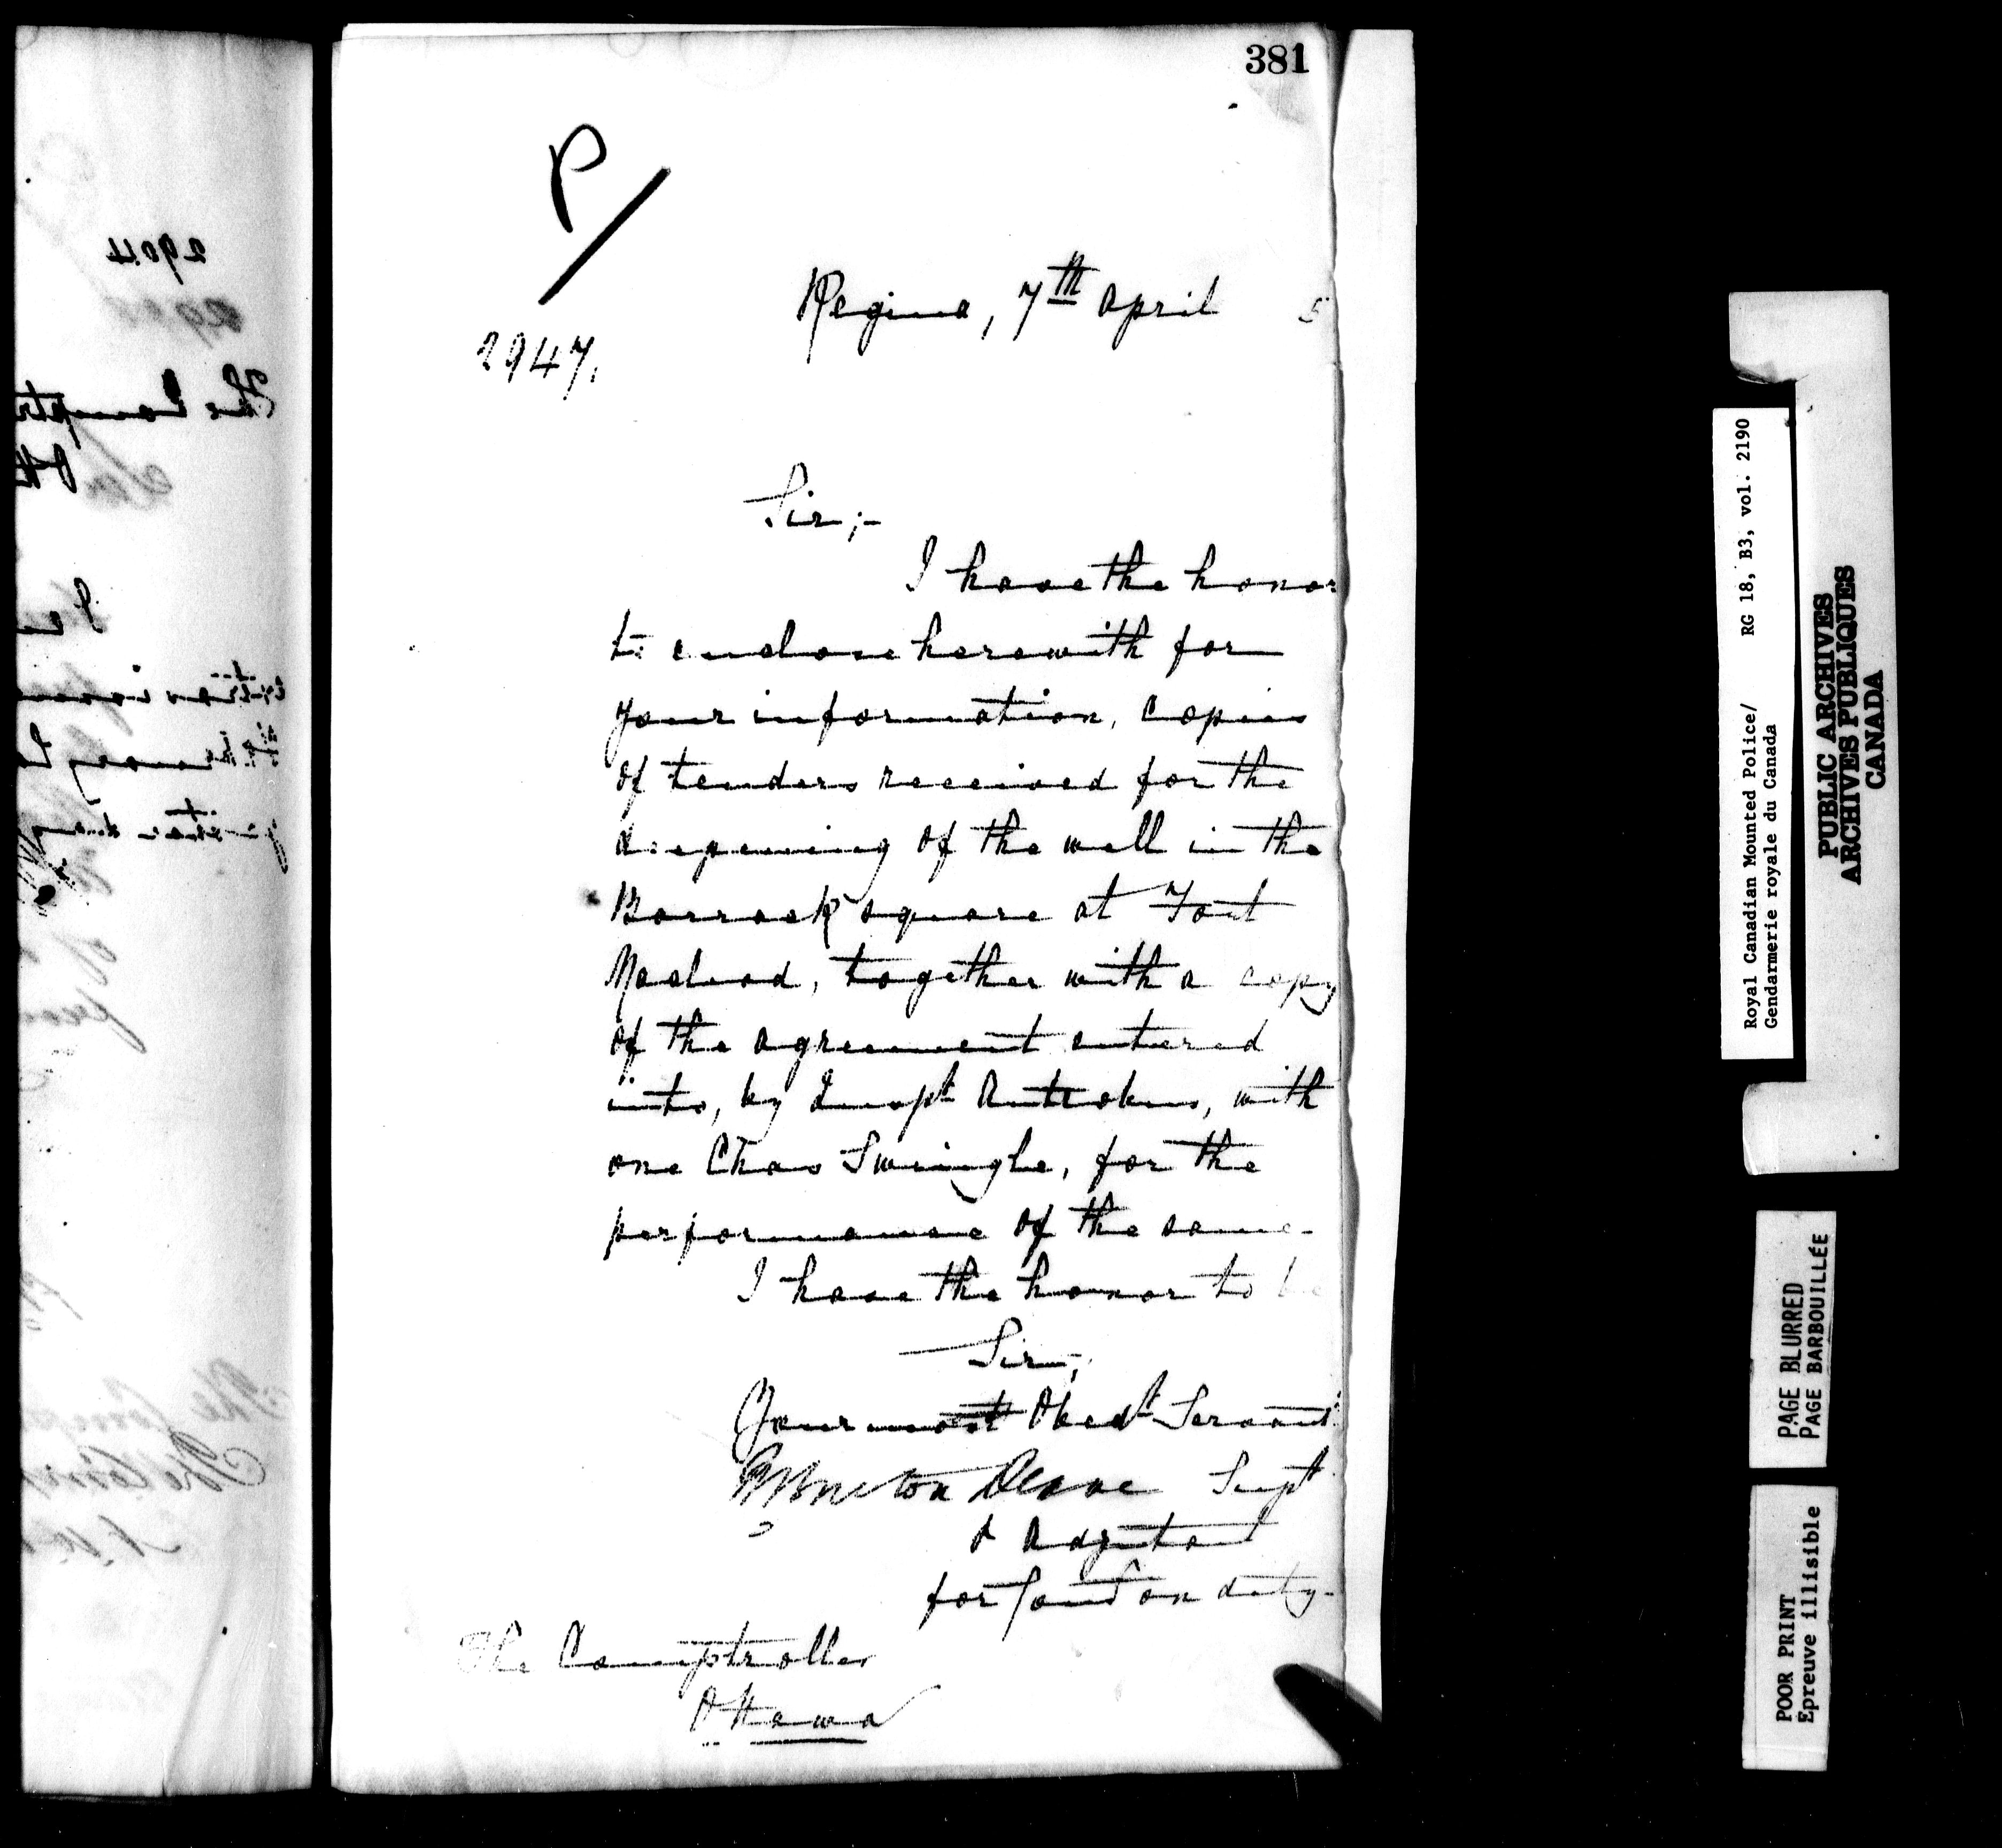 381
P/
Regina, 7th April 5
2947.
Sir;-
I have the honor
to enclose herewith for
your information, copies
of tenders received for the
deepening of the well in the
Barrack square at Fort
Macleod, together with a copy
of the agreement entered
into, by Insp't Antrobus, with
one Chas Swingle, for the
performance of the same.
I have the honor to be
Sir,
Your most Obedt Servant
Burton Deane Supt
& Adjutant
for Comr on duty.
The Comptroller
Ottawa
Royal Canadian Mounted Police/ RG 18, B3, vol. 2190
Gendarmerie royale du Canada
PUBLIC ARCHIVES
ARCHIVES PUBLIQUES
CANADA
PAGE BLURRED
PAGE BARBOUILLÉE
POOR PRINT
Epreuve illisible
2904
The Comptr